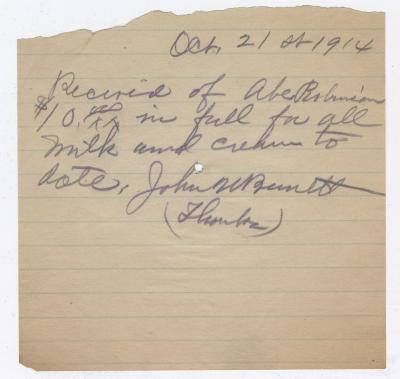 Oct, 21 st 1914
Received of Abe Robinson
$10. in full for all
milk and cream to
date, John W Burnett
(Thanks)